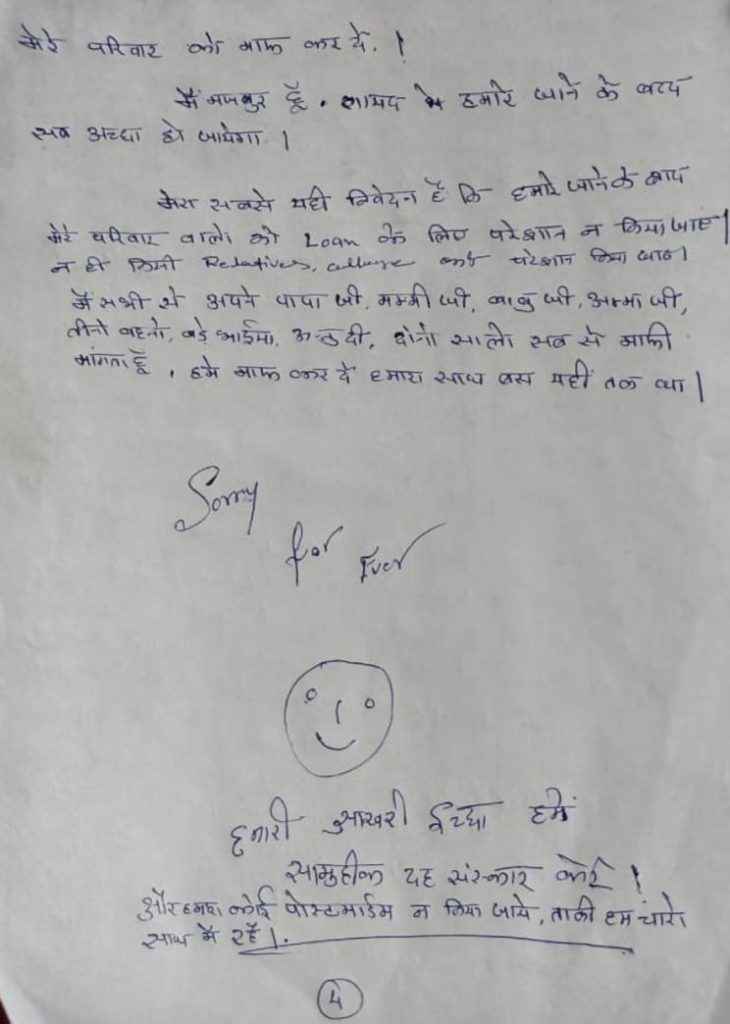 मेरे परिवार को माफ कर दे. !
मैं मजबुर हूँ. शायद हमारे जाने के बाद
सब अच्छा हो जायेगा. |
मेरा सबसे यही निवेदन है कि हमारे जाने के बाद
मेरे परिवार वालो को Loan के लिए परेशान न किया जाए |
न ही किसी Relatives, को परेशान किया जाए |
मैं सभी से अपने पापा जी, मम्मी जी, बाबु जी, अम्मा जी,
तीनो बहनो, बड़े भाईया, दी, दोनो सालो सब से माफी
मांगता हूँ, हमे माफ कर दे हमारा साथ बस यहीं तक था |
Sorry
for Ever
हमारी आखरी ईच्छा हमें
सामुहीक दह संस्कार करे !
और हमारा कोई पोस्टमार्डम न किया जाये, ताकी हम चारो
साथ में रहें |.
4